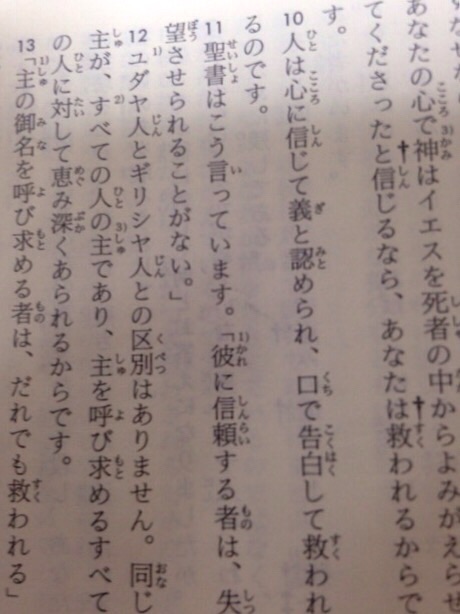 あなたの心で3)神はイエスを死者の中からよみがえらせ
てくださったと†信じるなら、あなたは†救われるからで
す。
10人は心に信じて義と認められ、口で告白して救われ
るのです。
11聖書はこう言っています。「1)彼に信頼する者は、失
望させられることがない。」
12 1)ユダヤ人とギリシヤ人との区別はありません。同じ
主が、2)すべての人の3)主であり、主を呼び求めるすべて
の人に対して恵み深くあられるからです。
13「1)主の御名を呼び求める者は、だれでも救われる」